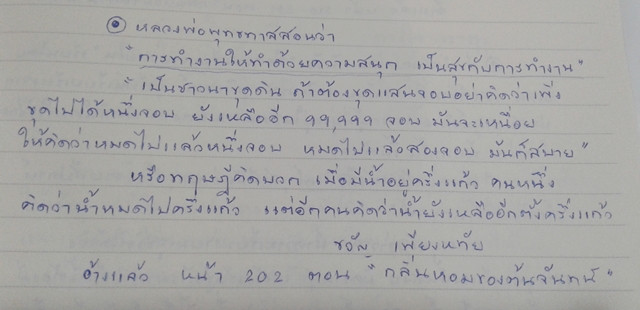 หลวงพ่อพุทธทาสสอนว่า
"การทำงานให้ทำด้วยความสนุก เป็นสุขกับการทำงาน"
"เป็นชาวนาขุดดิน ถ้าต้องขุดแสนจอบอย่าคิดว่าเพิ่ง
ขุดไปได้หนึ่งจอบ ยังเหลืออีก ๙๙,๙๙๙ จอบ มันจะเหนื่อย
ให้คิดว่าหมดไปแล้วหนึ่งจอบ หมดไปแล้วสองจอบ มันก็สบาย"
หรือทฤษฎีคิดบวก เมื่อมีน้ำอยู่ครึ่งแก้ว คนหนึ่ง
คิดว่าน้ำหมดไปครึ่งแก้ว แต่อีกคนคิดว่าน้ำยังเหลืออีกตั้งครึ่งแก้ว
ชวัล เพียงหทัย
อ้างแล้ว หน้า 202 ตอน "กลิ่นหอมของต้นจันทน์"